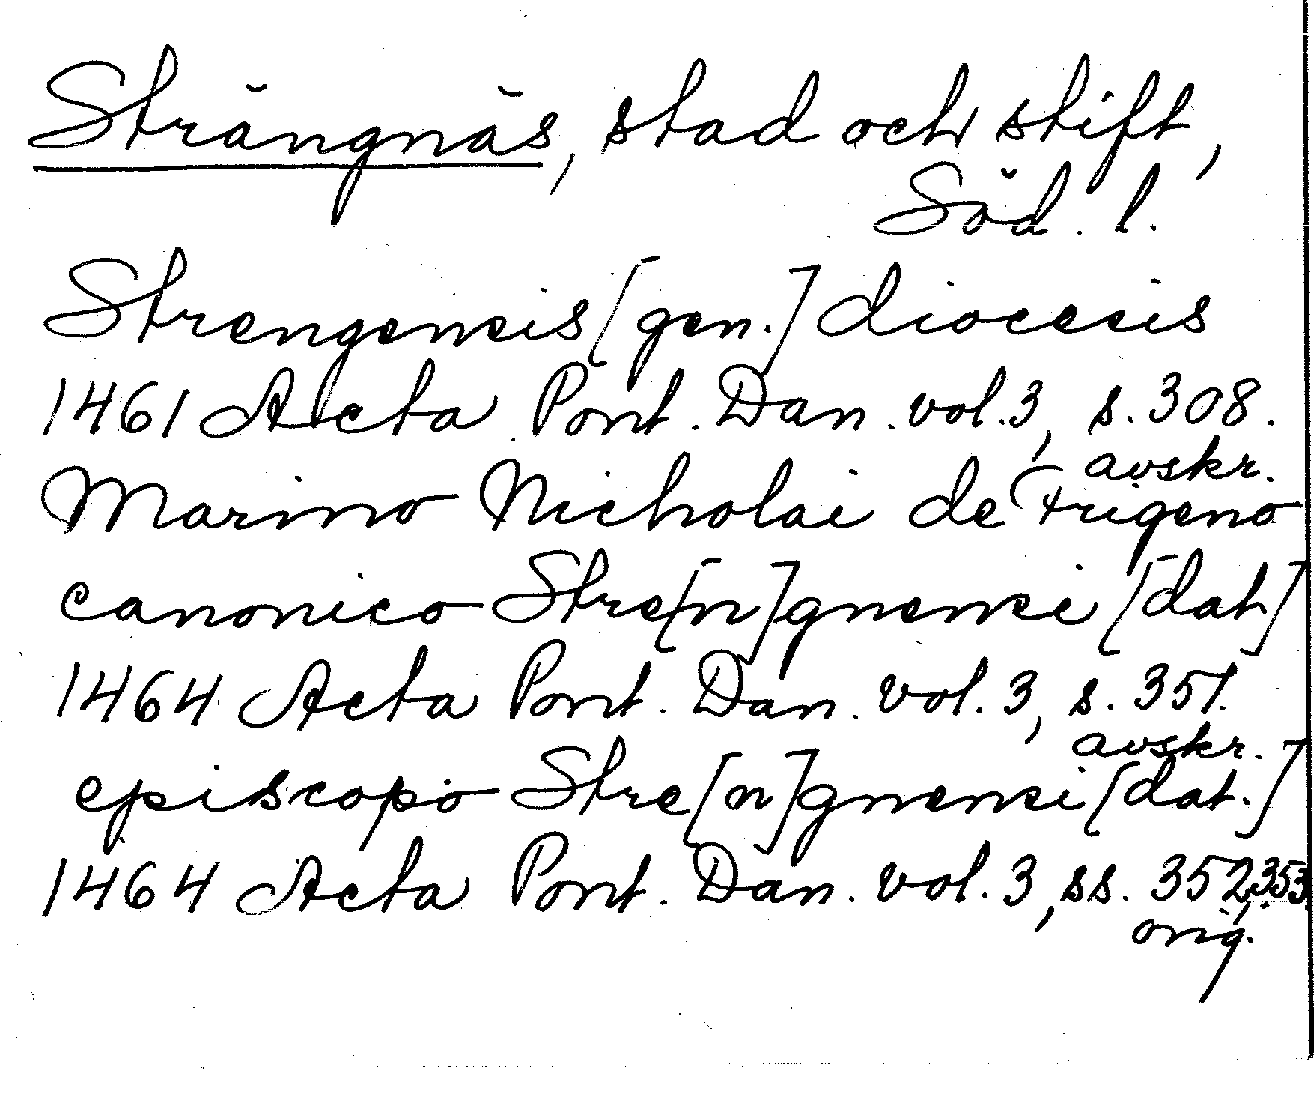 Strängnäs, stad och stift,
Söd. l.
Strengensis [gen.] diocesis
1461 Acta Pont. Dan. vol. 3, s. 308.
avskr.
Marino Nicholai de Frigeno
canonico Stre[n]gnensi [dat]
1464 Acta Pont. Dan. vol. 3, s. 351.
avskr.
episcopo Stre[n]gnensi [dat.]
1464 Acta Pont. Dan. vol. 3, ss. 352, 353.
orig.